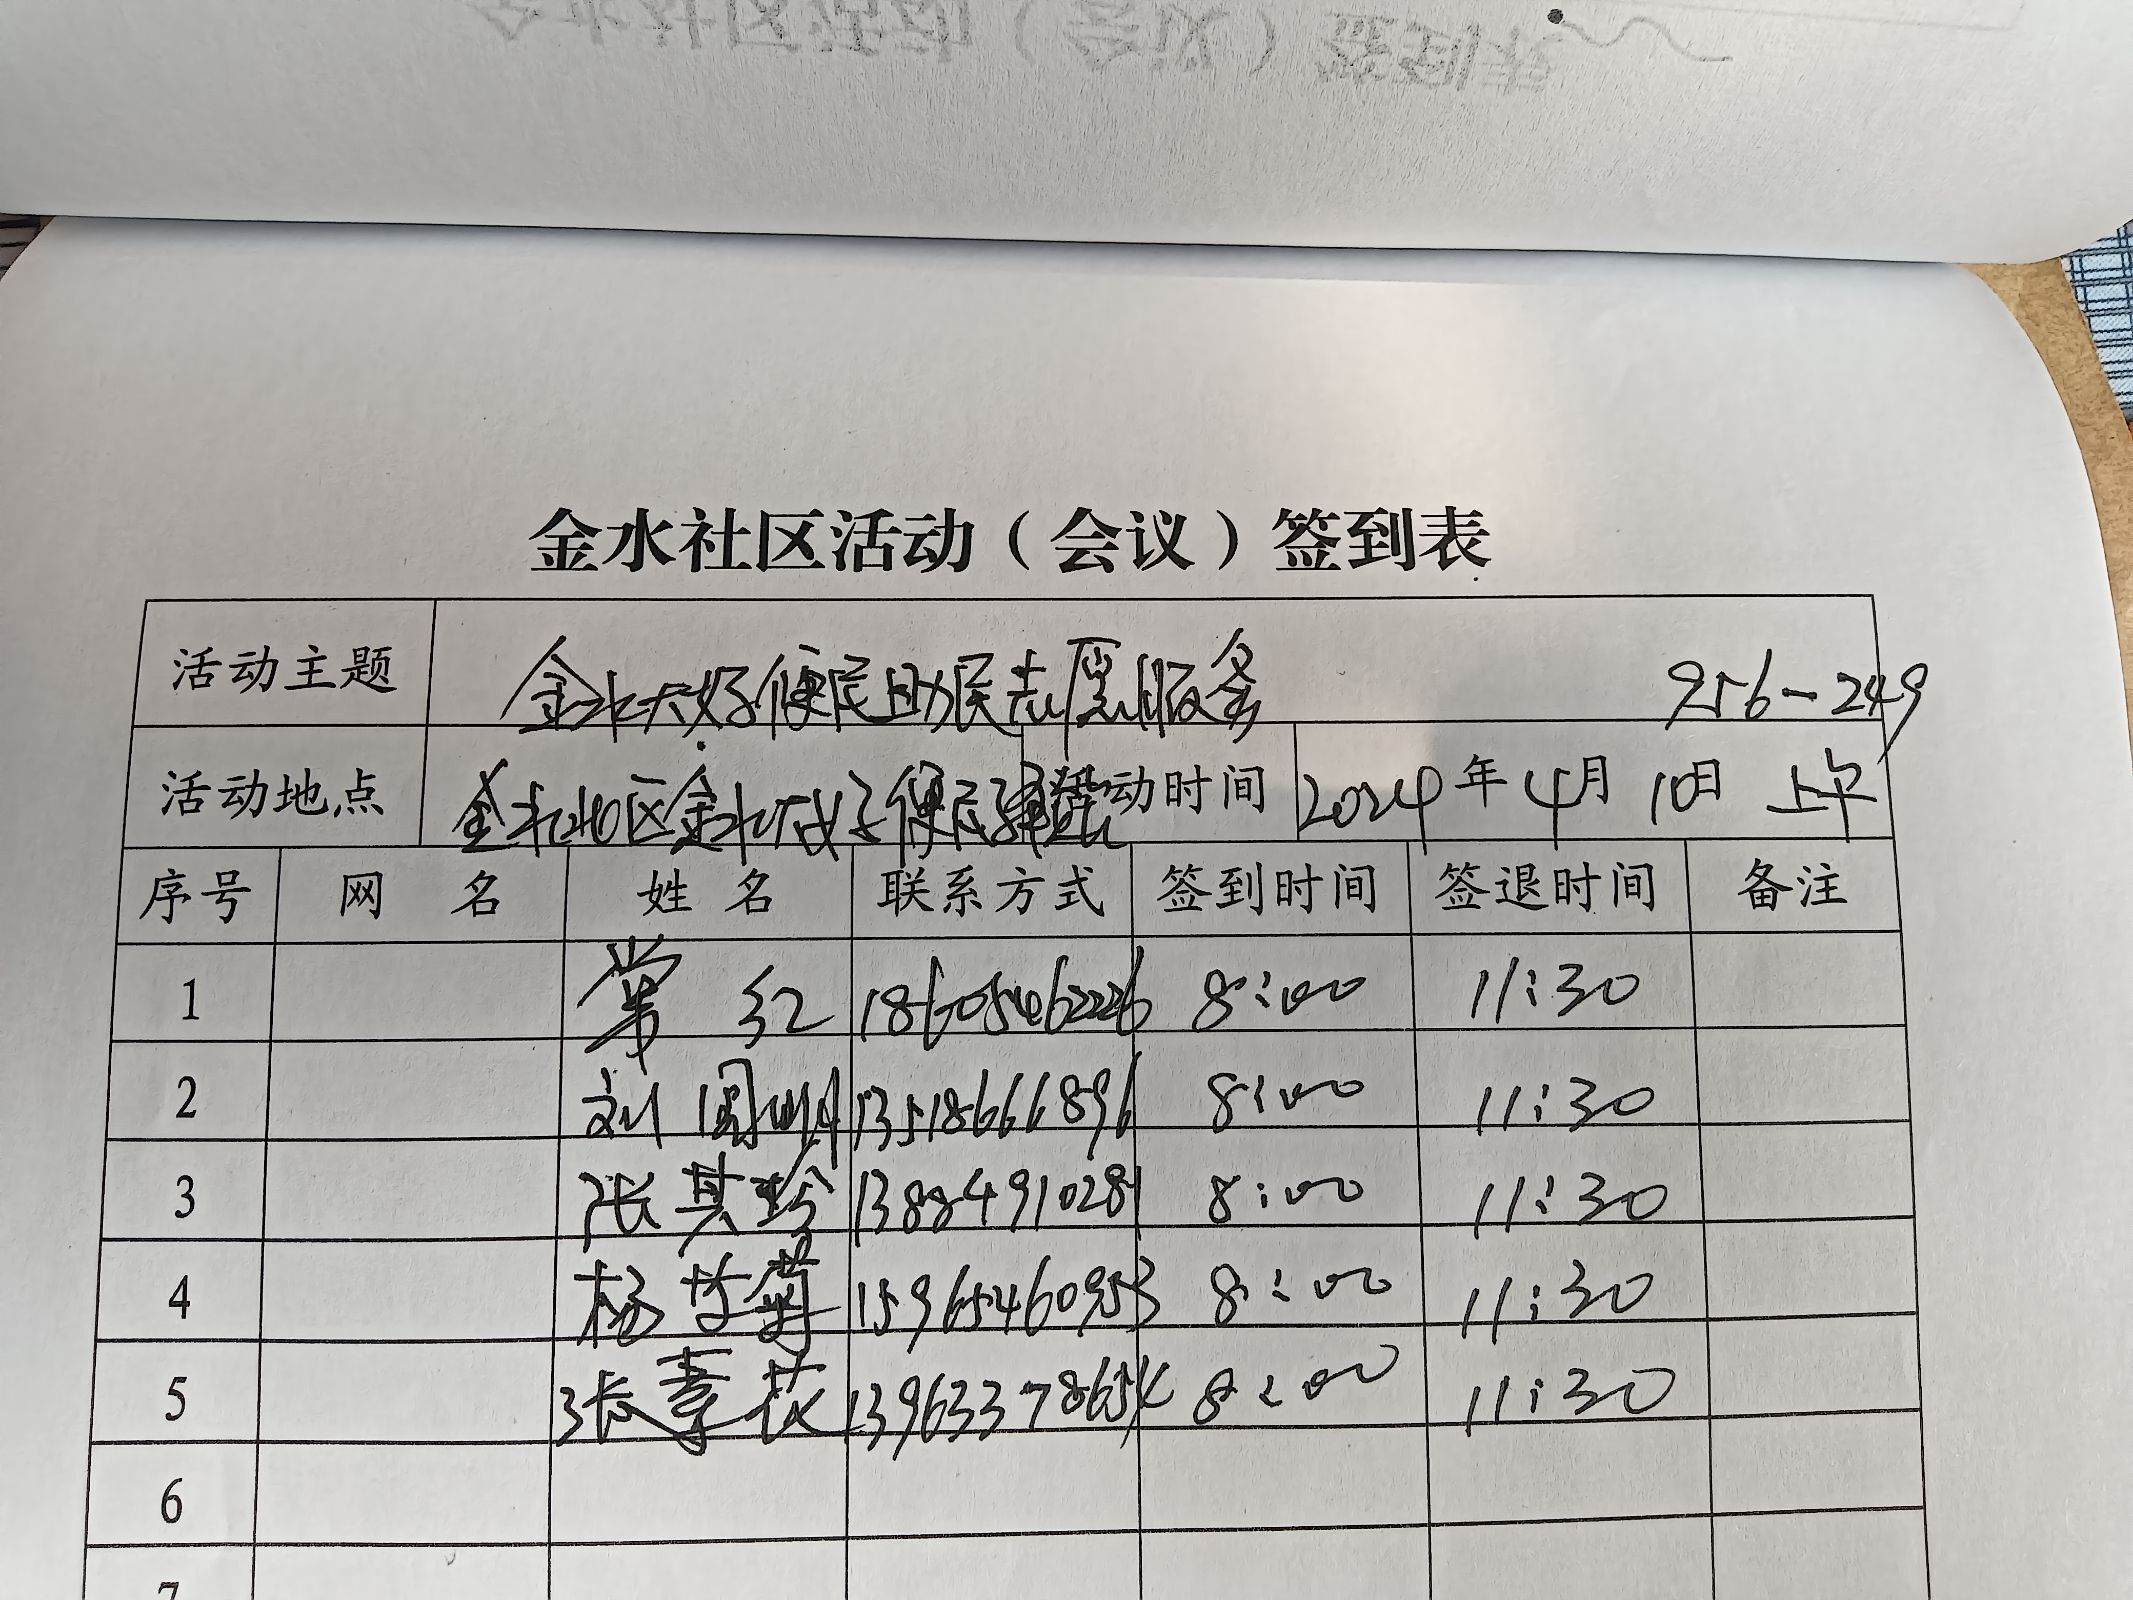 金水社区活动（会议）签到表
活动主题 金水大好便民助民志愿服务 956-249
活动地点 金水社区金水大好便民 活动时间 2024年4月10日 上午
序号 网 名 姓 名 联系方式 签到时间 签退时间 备注
1 常 红 18605462226 8:00 11:30
2 刘 13518666896 8:00 11:30
3 张其珍 13884910281 8:00 11:30
4 杨 菊 15965460953 8:00 11:30
5 张 13963378654 8:00 11:30
6
7